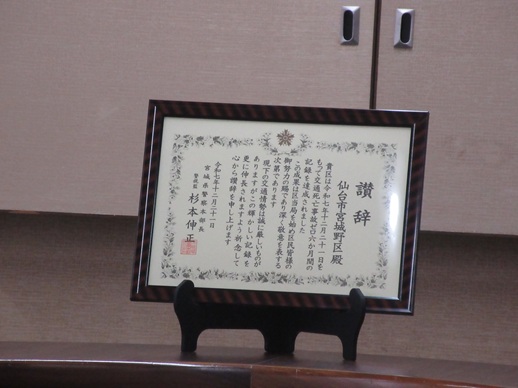 讃辞
仙台市宮城野区殿
貴区は令和七年十二月二十一日を
もって交通死亡事故ゼロ六か月間の
記録を達成されました
この成果は区当局を始め区民皆様の
御努力の賜であり深く敬意を表する
次第であります
現下の交通情勢は誠に厳しいものが
ありますがこの輝かしい記録を
更に伸長されますよう祈念して
心から讃辞を申し上げます
令和七年十二月二十二日
宮城県警察本部長
警視監 杉本伸正